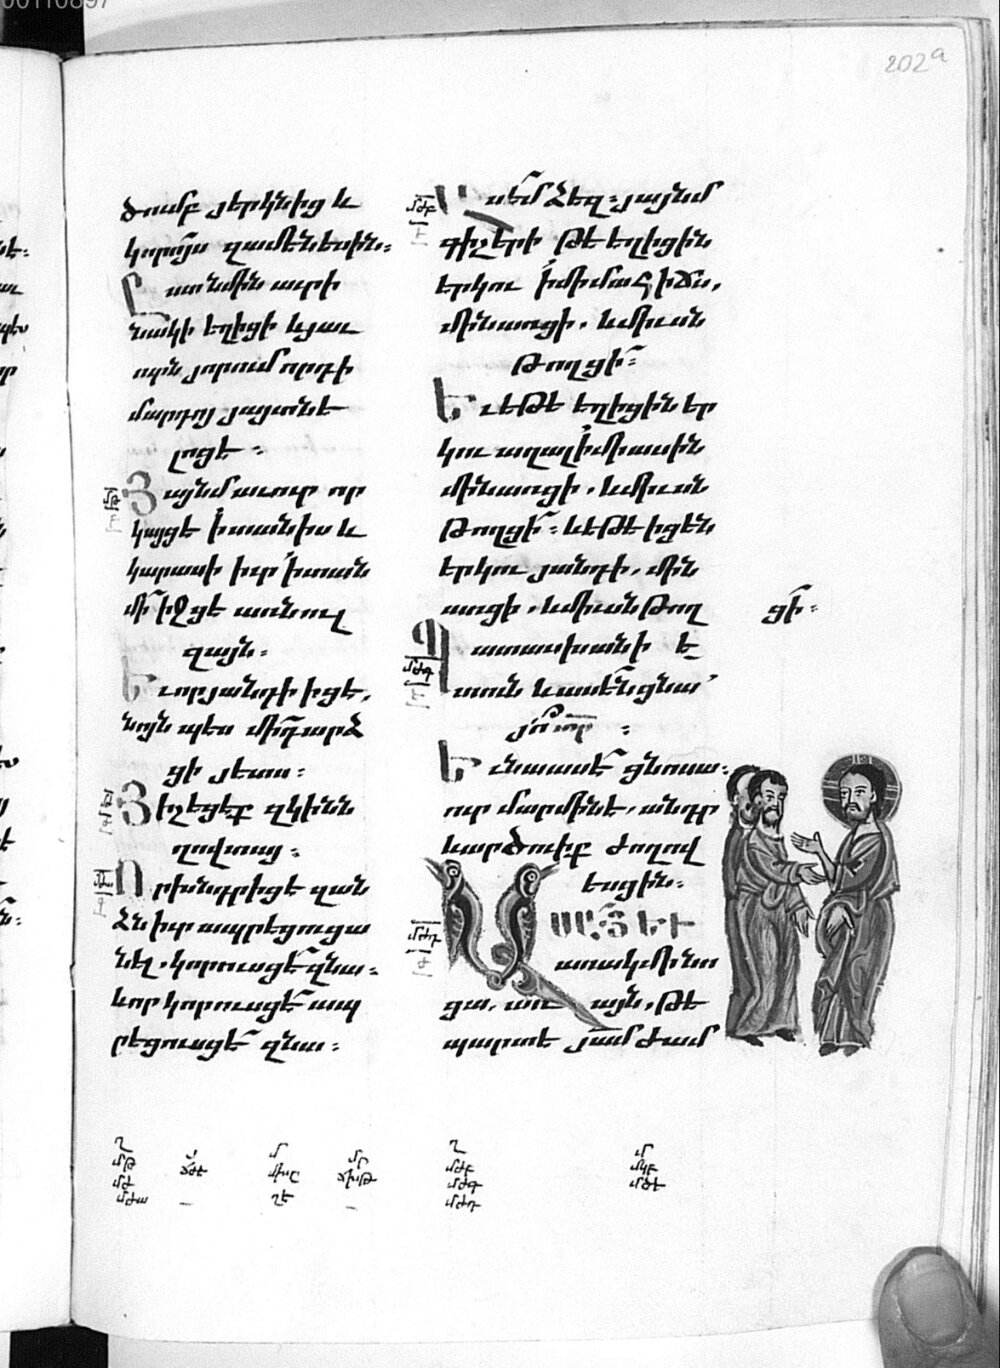 00110897
202a
ծումբ յերկնից և
կորոյս զամենեսին։
Ըստ նմին օրի
նակի եղիցի և յաւ
ուրն յորում որդի
մարդոյ յայտնե
լոցէ ։
Յայնմ աւուր որ
կայցէ ի տանիս և
կարասի իւր ի տան
մի իջցէ առնուլ
զայն։
Եւ որ յանդի իցէ,
նոյնպես մի դարձ
ցի յետս։
Յիշեցէք զկինն
ղովտայ։
Որ խնդրիցէ զան
ձն իւր ապրեցուցա
նել, կորուսցէ զնա։
և որ կորուսցէ ապ
րեցուսցէ զնա։
մթ
մժ
մժա
Ասեմ ձեզ։ յայնմ
գիշերի թե եղիցին
երկու ի մի մահիճս,
մինն առցի, և միւսն
թողցի։
Եւ եթե եղիցին եր
կու աղալ ի միասին
մինն առցի, և միւսն
թողցի։ և եթե իցեն
երկու յանդի, մին
առցի, և միւսն թող
ցի։
Պատասխանի ե
տուն և ասեն ցնա՛
յո՞ տր ։
Եւ նա ասէ ցնոսա։
ուր մարմինն է, անդր
և արծուիք ժողով
եսցին։
ԱՍԱՅ ԵՒ
առակ մի նո
ցա, առ այն, թե
պարտ է յամ ժամ
մժբ
մժգ
մժդ
ղ
մթ
մժ
մժա
ճժէ
մ
ղե
ղ
մժբ
մժգ
մժդ
մ
մկբ
մծէ